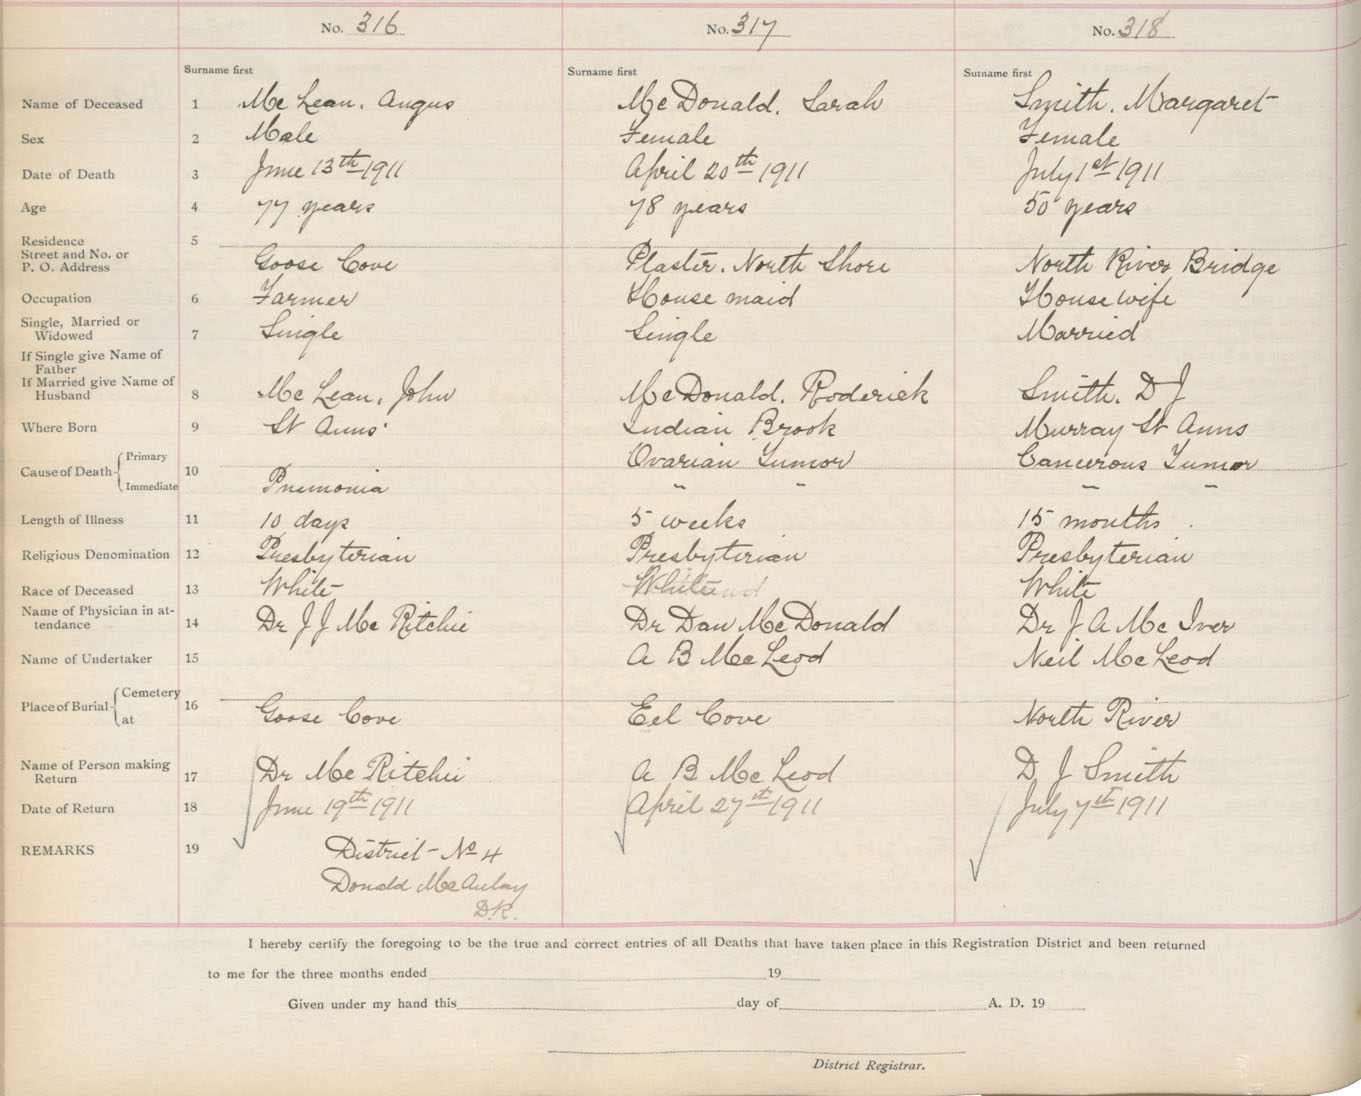 No. 316 No. 317 No. 318
Surname first Surname first Surname first
Name of Deceased 1 Mc Lean, Angus McDonald, Sarah Smith, Margaret
Sex 2 Male Female Female
Date of Death 3 June 13th 1911 April 20th 1911 July 1st 1911
Age 4 77 years 78 years 50 years
Residence 5
Street and No. or
P. O. Address Goose Cove Plaster, North Shore North River Bridge
Occupation 6 Farmer House maid Housewife
Single, Married or
Widowed 7 Single Single Married
If Single give Name of
Father
If Married give Name of
Husband 8 Mc Lean, John McDonald, Roderick Smith, D J
Where Born 9 St Anns Indian Brook Murray St Anns
Cause of Death Primary 10 Ovarian Tumor Cancerous Tumor
Immediate Pnemonia " " " "
Length of Illness 11 10 days 5 weeks 15 months
Religious Denomination 12 Presbyterian Presbyterian Presbyterian
Race of Deceased 13 White White White
Name of Physician in at-
tendance 14 Dr J J Mc Ritchie Dr Dan McDonald Dr J A Mc Iver
Name of Undertaker 15 A B McLeod Neil McLeod
Place of Burial Cemetery 16
at Goose Cove Eel Cove North River
Name of Person making
Return 17 Dr Mc Ritchie A B McLeod D J Smith
Date of Return 18 June 19th 1911 April 27th 1911 July 7th 1911
REMARKS 19 District No 4
Donald McAulay
D.R.
I hereby certify the foregoing to be the true and correct entries of all Deaths that have taken place in this Registration District and been returned
to me for the three months ended 19
Given under my hand this day of A. D. 19
District Registrar.